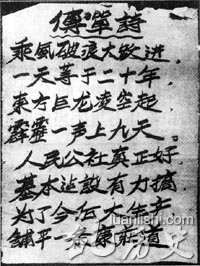 傳單詩
乘風破浪大跃进，
一天等于二十年，
東方巨龙凌空起
霹靂一声上九天。
人民公社真正好
基本建設有力搞
为了今后
鋪平一条康莊道
luanlishi.com